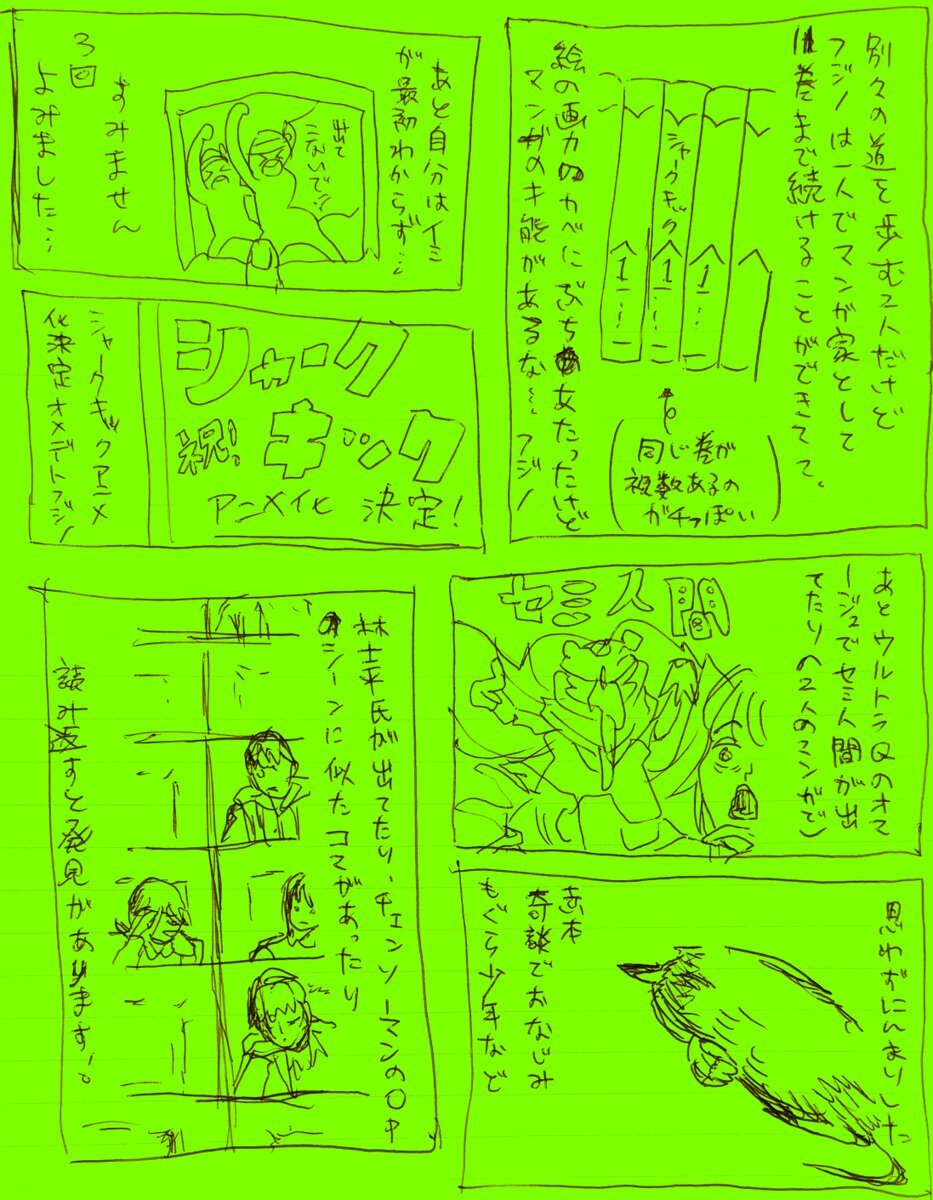 別々の道を歩む2人だけど
フジノは一人でマンガ家として
11巻まで続けることができてて。
シャークキック
1
1
1
同じ巻が
複数あるの
がチっぽい
絵の画力のカベにぶちあたったけど
マンガの才能があるな… フジノ
あと自分はイミ
が最初わからず…
出て
こないで!!
すみません
3回
よみました…
シャーク
キック
祝!
アニメイ化 決定!
シャークキックアニメ
化決定オメデトフジノ
あとウルトラQのオマ
ージュでセミ人間が出
てたり(2人のマンガで)
セミ人間
思わずにんまりした
奇談でおなじみ
もぐら少年など
林士平氏が出てたり、チェンソーマンの〇中
のシーンに似たコマがあったり
読み返すと発見があります!。